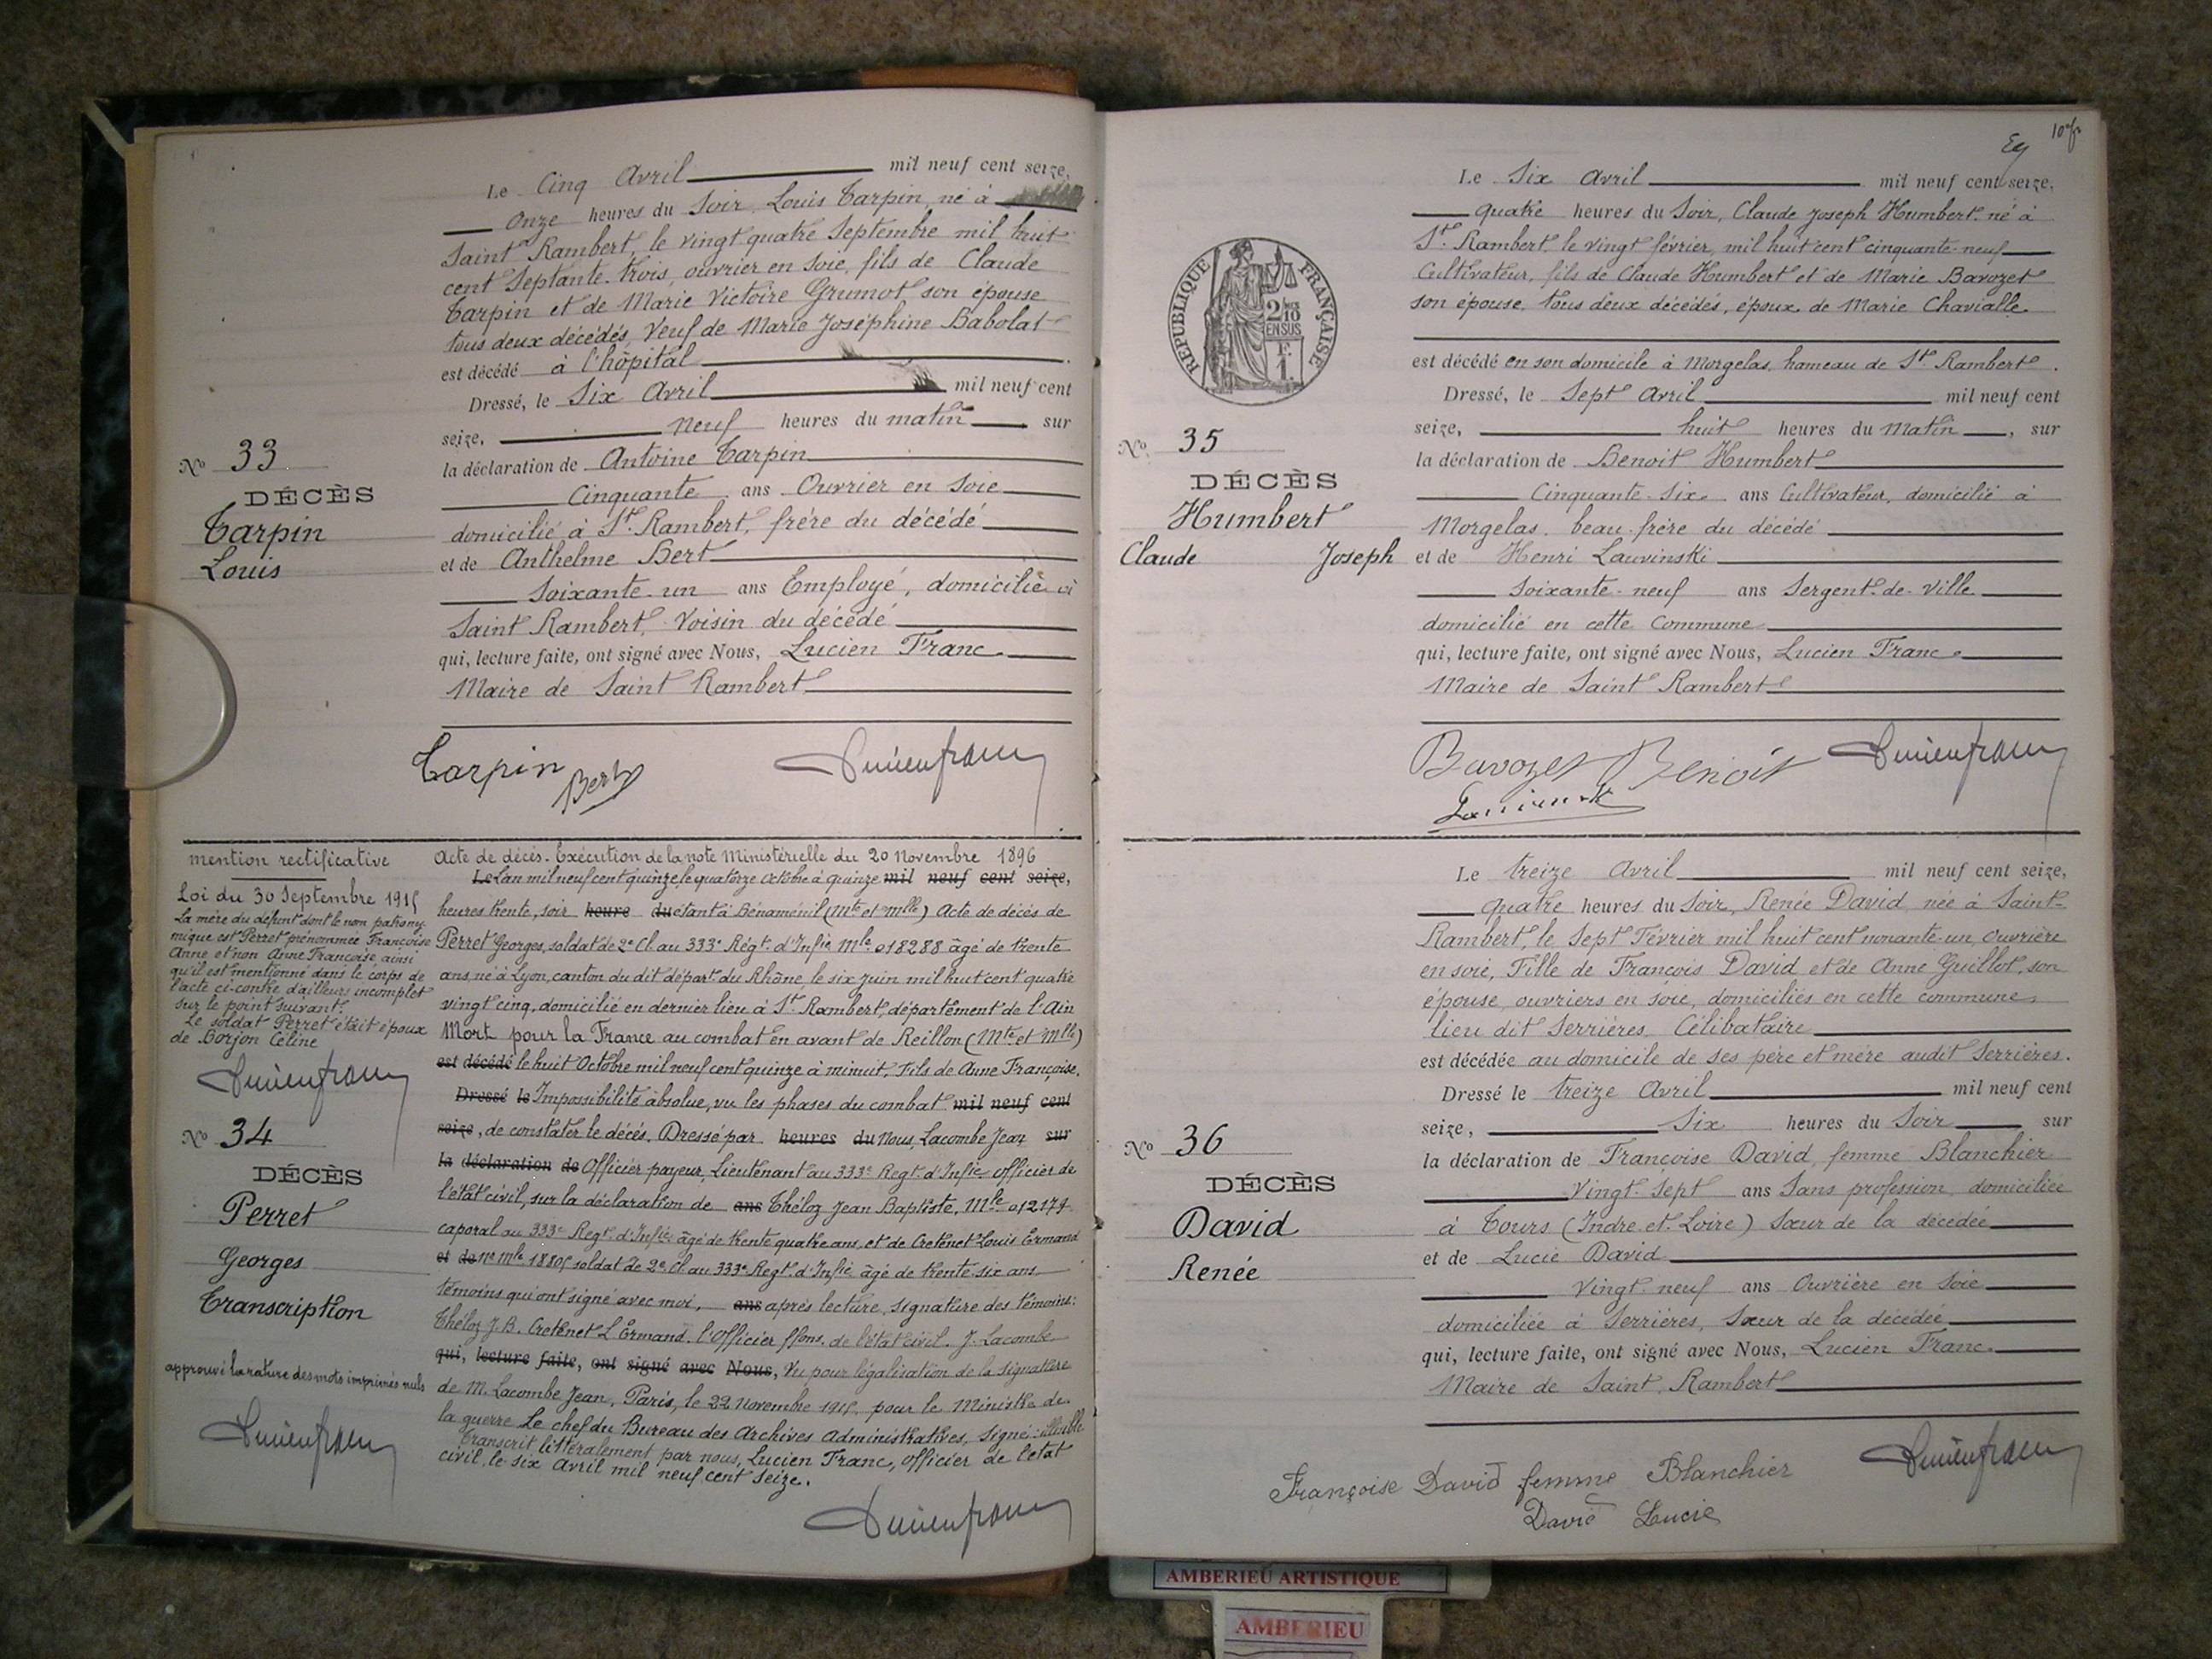 Le Cinq Avril mil neuf cent seize,
Onze heures du Soir, Louis Tarpin, né à
Saint Rambert, le vingt quatre Septembre mil huit
cent Septante-trois, ouvrier en Soie, fils de Claude
Tarpin et de Marie Victoire Grumot, son épouse
tous deux décédés, Veuf de Marie Joséphine Babolat
est décédé à l'hôpital.
Dressé, le Six Avril mil neuf cent
seize, neuf heures du matin sur
la déclaration de Antoine Tarpin
Cinquante ans Ouvrier en Soie
domicilié à St. Rambert, frère du décédé
et de Anthelme Bert
Soixante-un ans Employé, domicilié à
Saint Rambert, Voisin du décédé
qui, lecture faite, ont signé avec Nous, Lucien Franc
Maire de Saint Rambert
No 33
DÉCÈS
Tarpin
Louis
Tarpin Bert Lucien franc
mention rectificative
Loi du 30 Septembre 1915
La mère du défunt dont le nom patrony-
mique est Perret prénommée Françoise
Anne et non Anne Françoise, ainsi
qu'il est mentionné dans le corps de
l'acte ci-contre d'ailleurs incomplet
sur le point suivant.
Le soldat Perret était époux
de Borjon Céline
Lucien franc
No 34
DÉCÈS
Perret
Georges
Transcription
approuvé la rature des mots imprimés nuls
Lucien franc
Acte de décès. Exécution de la note Ministérielle du 20 Novembre 1896
Le L'an mil neuf cent quinze, le quatorze Octobre à quinze mil neuf cent seize,
heures trente, soir heure du étant à Bénaménil (Mte et Mlle) Acte de décès de
Perret Georges, soldat de 2e Cl. au 333e Régt. d'Infie Mle 018288 âgé de trente
ans, né à Lyon, canton du dit départ. du Rhône, le six Juin mil huit cent quatre
vingt cinq, domicilié en dernier lieu à St. Rambert, département de l'Ain
Mort pour la France au combat en avant de Reillon (Mte et Mlle)
est décédé le huit Octobre mil neuf cent quinze à minuit, Fils de Anne Françoise.
Dressé le Impossibilité absolue, vu les phases du combat mil neuf cent
seize, de constater le décès. Dressé par heures du Nous Lacombe Jean sur
la déclaration de Officier payeur, Lieutenant au 333e Regt. d'Infie officier de
l'état civil, sur la déclaration de ans Théloz Jean Baptiste, Mle 012174
caporal au 333e Regt. d'Infie âgé de trente quatre ans, et de Cretenet Louis Ermand
et de No Mle 18805 soldat de 2e Cl. au 333e Regt. d'Infie âgé de trente-six ans
témoins qui ont signé avec moi, ans après lecture, Signature des témoins:
Théloz J.B. Cretenet L Ermand. l'Officier ffons. de l'état civil. J. Lacombe
qui, lecture faite, ont signé avec Nous, Vu pour légalisation de la signature
de M. Lacombe Jean, Paris, le 22 Novembre 1915. pour le Ministre de
la guerre Le chef du Bureau des Archives Administratives, Signé: illisible
Transcrit littéralement par nous, Lucien Franc, officier de l'état
civil, le six Avril mil neuf cent seize.
Lucien franc
Le Six Avril mil neuf cent seize,
quatre heures du Soir, Claude Joseph Humbert né à
St. Rambert, le vingt février, mil huit cent cinquante-neuf
Cultivateur, fils de Claude Humbert et de Marie Bavozet
son épouse, tous deux décédés, époux de Marie Chavialle
est décédé en son domicile à Morgelas, hameau de St Rambert.
Dressé, le Sept Avril mil neuf cent
seize, huit heures du Matin, sur
la déclaration de Benoit Humbert
Cinquante-Six ans Cultivateur, domicilié à
Morgelas. beau-frère du décédé
et de Henri Lauvinski
Soixante-neuf ans Sergent-de-Ville
domicilié en cette Commune
qui, lecture faite, ont signé avec Nous, Lucien Franc
Maire de Saint Rambert
REPUBLIQUE FRANÇAISE
2/10
EN SUS
No 35
DÉCÈS
Humbert
Claude Joseph
Bavozet Benoit Lucien franc
Lauvinski
Le treize Avril mil neuf cent seize,
quatre heures du Soir, Renée David, née à Saint-
Rambert, le Sept Février mil huit cent nonante-un, Ouvrière
en soie, Fille de François David et de Anne Guillot, son
épouse, ouvriers en soie, domiciliés en cette commune,
lieu dit Serrières. Célibataire
est décédée au domicile de ses père et mère audit Serrières.
Dressé le treize Avril mil neuf cent
seize, Six heures du Soir sur
la déclaration de Françoise David, femme Blanchier
Vingt-Sept ans Sans profession, domiciliée
à Tours (Indre-et-Loire) Sœur de la décédée
et de Lucie David
Vingt-neuf ans Ouvrière en Soie
domiciliée à Serrières, Sœur de la décédée
qui, lecture faite, ont signé avec Nous, Lucien Franc
Maire de Saint Rambert
No 36
DÉCÈS
David
Renée
Françoise David femme Blanchier Lucien franc
David Lucie
AMBERIEU ARTISTIQUE
AMBERIEU